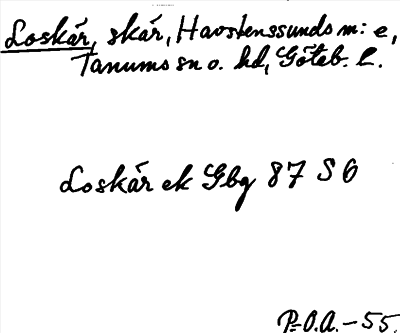 Loskär, skär, Havstenssunds m: e,
Tanums sn o. hd, Göteb. l.
Loskär ek Gbg 87 SO
P.O.A. - 55.